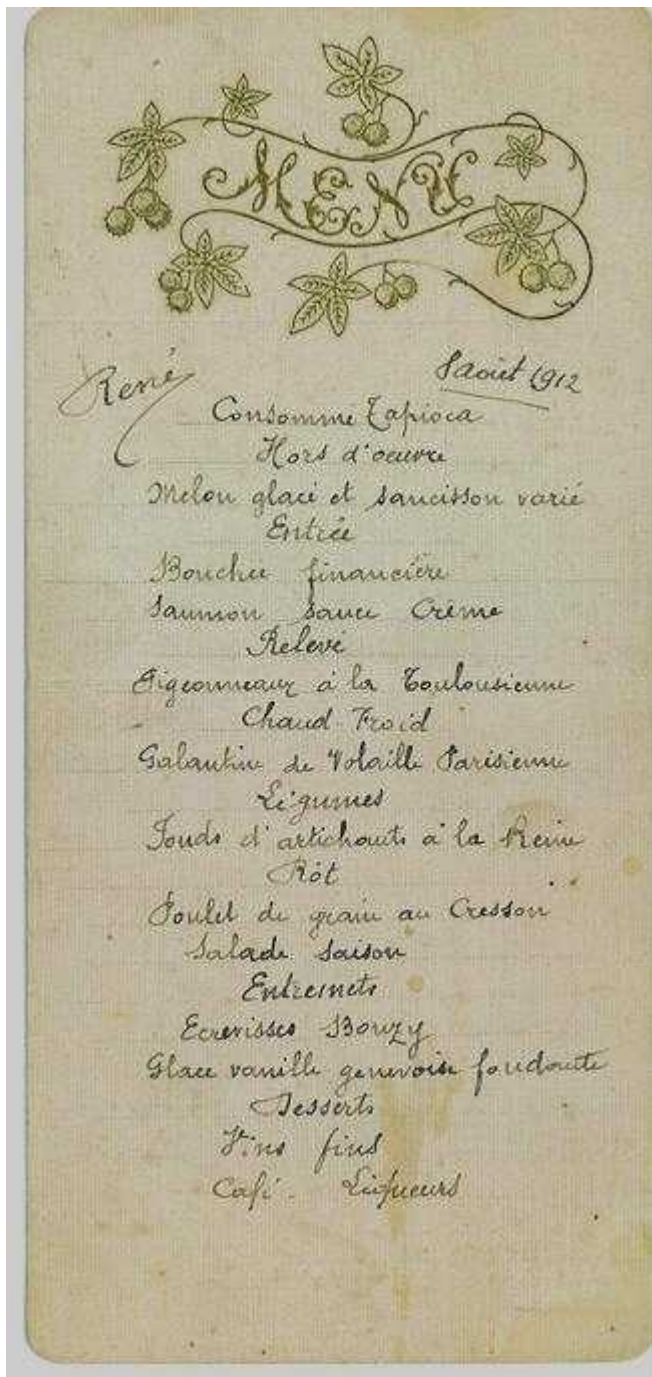 MENU
René
8 août 1912
Consomme Tapioca
Hors d'oeuvre
Melon glacé et saucisson varié
Entrée
Bouchee financière
Saumon sauce Crême
Relevé
Pigeonneaux à la Toulousienne
Chaud-Froid
Galantine de Volaille Parisienne
Légumes
Fonds d'artichauts à la Reine
Rôt
Poulet de grain au Cresson
Salade saison
Entremets
Ecrevisses Bouzy
Glace vanille genevoise
Desserts
Vins fins
Café. Liqueurs